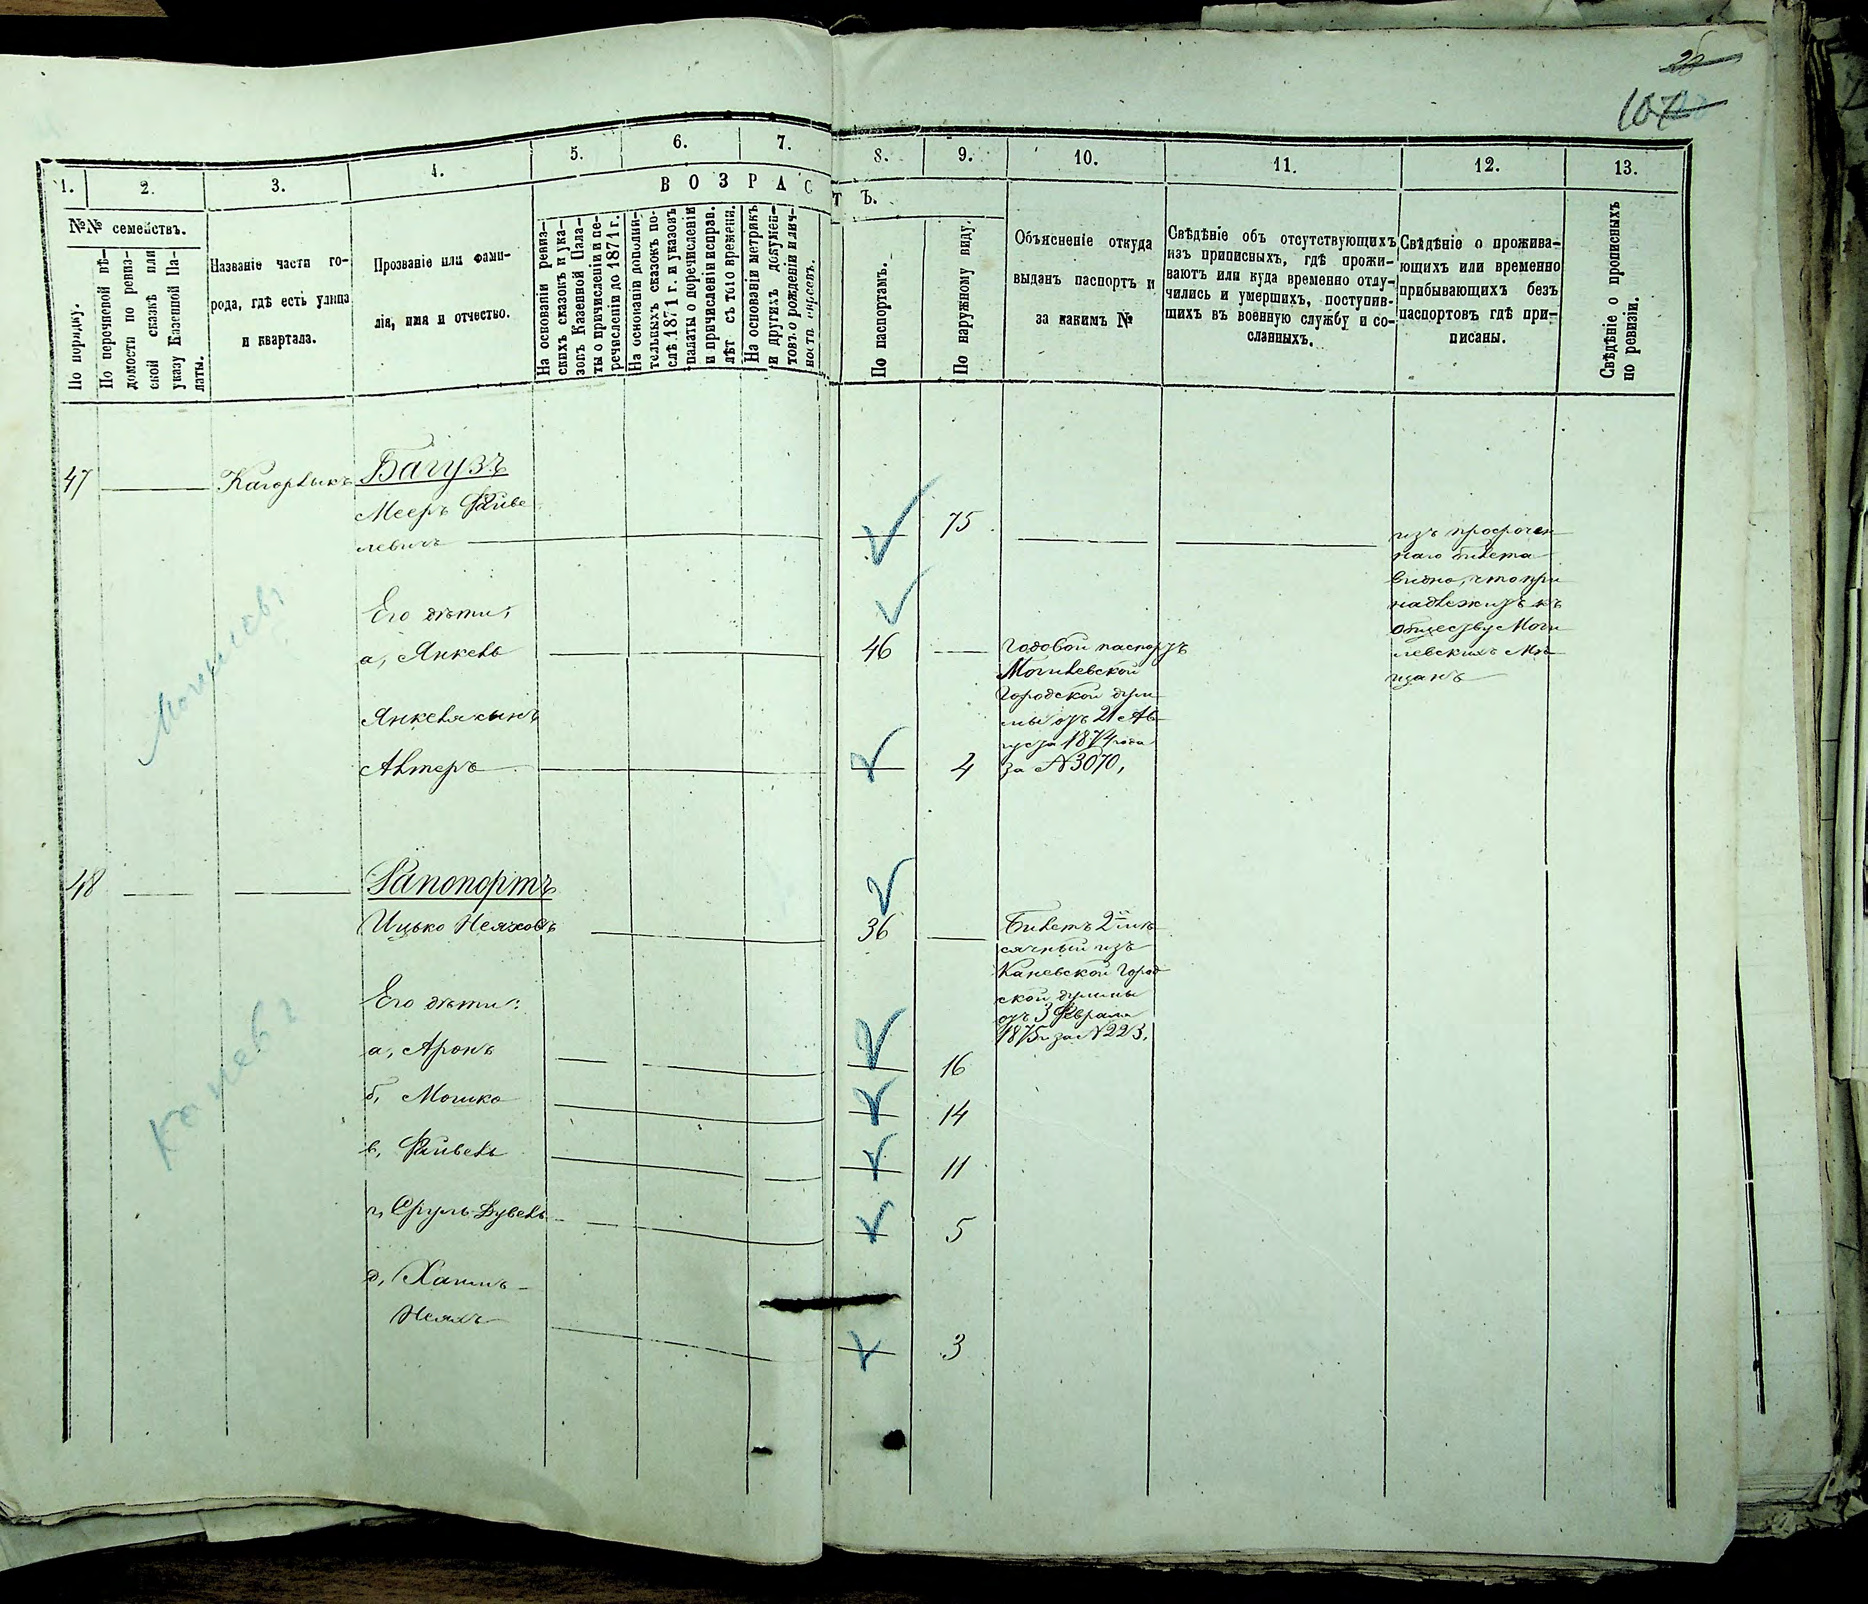 26
107
1.
2.
3.
4.
5.
6.
7.
8.
9.
10.
11.
12.
13.
№№ семействъ.
ВОЗРАСТЪ.
По порядку.
По перечневой вѣ-
домости по ревиз-
ской сказкѣ или
указу Казенной Па-
латы.
Названіе части го-
рода, гдѣ есть улица
и квартала.
Прозваніе или фами-
лія, имя и отчество.
На основаніи ревиз-
скихъ сказокъ и ука-
зовъ Казенной Пала-
ты о причисленіи и пе-
речисленіи до 1871 г.
На основаніи дополни-
тельныхъ сказокъ по-
слѣ 1871 г. и указовъ
палаты о перечисленіи
и причисленіи исправ.
лѣт съ того времени.
На основаніи метрикъ
и другихъ докумен-
товъ о рожденіи и лич-
По паспортамъ.
По наружному виду.
Объясненіе откуда
выданъ паспортъ и
за какимъ №
Свѣдѣніе объ отсутствующихъ
изъ приписныхъ, гдѣ прожи-
ваютъ или куда временно отлу-
чились и умершихъ, поступив-
шихъ въ военную службу и со-
сланныхъ.
Свѣдѣніе о прожива-
ющихъ или временно
прибывающихъ безъ
паспортовъ гдѣ при-
писаны.
Свѣдѣніе о прописныхъ
по ревизіи.
47
Кагорлыкъ
Багузъ
Мееръ Файве
левичъ
75
изъ просрочен
наго билета
видно, что при
надлежитъ къ
обществу Моги
левскихъ Мѣ
щанъ
Его дѣти:
а, Янкель
46
Годовой паспортъ
Могилевской
Городской дум
мы отъ 21 Ав
густа 1874 года
за №3070,
Янкеля сынъ
Алтеръ
4
Могилевъ
48
Рапопортъ
Ицько Неяховъ
36
Билетъ 2й мѣ
сячный изъ
Каневской Город
ской думмы
отъ 3 Февраля
1875 г за №223,
Его дѣти:
а, Аронъ
16
б, Мошко
14
в, Файвель
11
г, Сруль-Дувель
5
д, Хаимъ-
Неяхъ
3
Каневъ